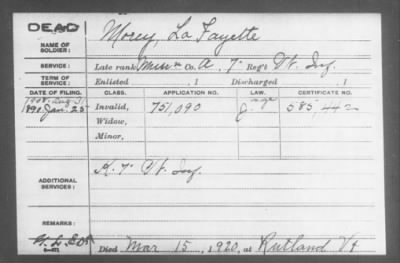 DEAD
NAME OF SOLDIER: Morey, La Fayette
SERVICE: Late rank, Co. A, 7 Reg't Vt. Inf.
TERM OF SERVICE: Enlisted , 1 Discharged , 1
DATE OF FILING. CLASS. APPLICATION NO. LAW. CERTIFICATE NO.
1908 Aug 31 age
1890 Jan. 25 Invalid, 751,090 585,442
Widow,
Minor,
ADDITIONAL SERVICES: K. 7 Vt. Inf.
REMARKS:
Died Mar 15, 1920, at Rutland Vt